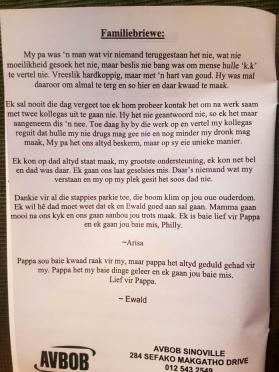 Familiebriewe:
My pa was 'n man wat vir niemand teruggestaan het nie, wat nie
moeilikheid gesoek het nie, maar beslis nie bang was om mense hulle 'k.k'
te vertel nie. Vreeslik hardkoppig, maar met 'n hart van goud. Hy was mal
daaroor om almal te terg en so hier en daar kwaad te maak.
Ek sal nooit die dag vergeet toe ek hom probeer kontak het om na werk saam
met twee kollegas uit te gaan nie. Hy het nie geantwoord nie, so ek het maar
aangeneem dis 'n nee. Toe daag hy by die werk op en vertel my kollegas
reguit dat hulle my nie drugs mag gee nie en nog minder my dronk mag
maak, My pa het ons altyd beskerm, maar op sy eie unieke manier.
Ek kon op dad altyd staat maak, my grootste ondersteuning, ek kon net bel
en dad was daar. Ek gaan ons laat geselsies mis. Daar's niemand wat my
verstaan en my op my plek gesit het soos dad nie.
Dankie vir al die stappies parkie toe, die boom klim op jou oue ouderdom.
Ek wil hê dad moet weet dat ek en Ewald goed aan sal gaan. Mamma gaan
mooi na ons kyk en ons gaan aanhou jou trots maak. Ek is baie lief vir Pappa
en ek gaan jou baie mis, Philly.
~Arisa
Pappa sou baie kwaad raak vir my, maar pappa het altyd geduld gehad vir
my. Pappa het my baie dinge geleer en ek gaan jou baie mis.
Lief vir Pappa.
~ Ewald
AVBOB
AVBOB SINOVILLE
284 SEFAKO MAKGATHO DRIVE
012 543 2549